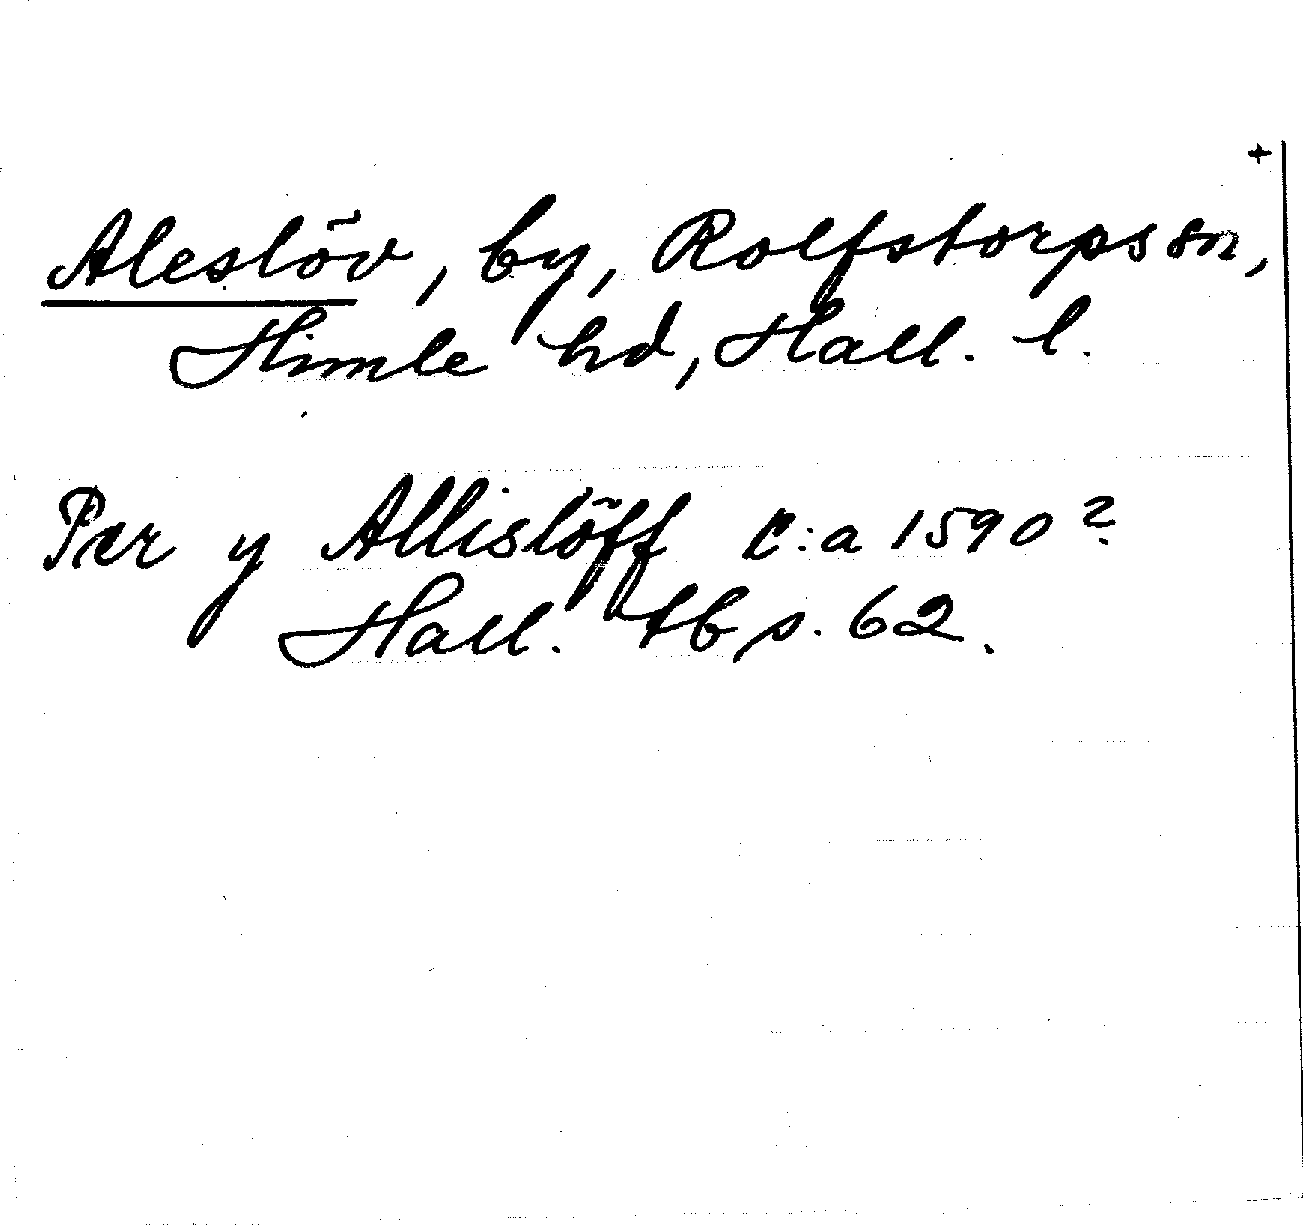 +
Aleslöv, by, Rolfstorps sn,
Himle hd, Hall. l.
Pær y Allislöff c:a 1590?
Hall. tb s. 62.